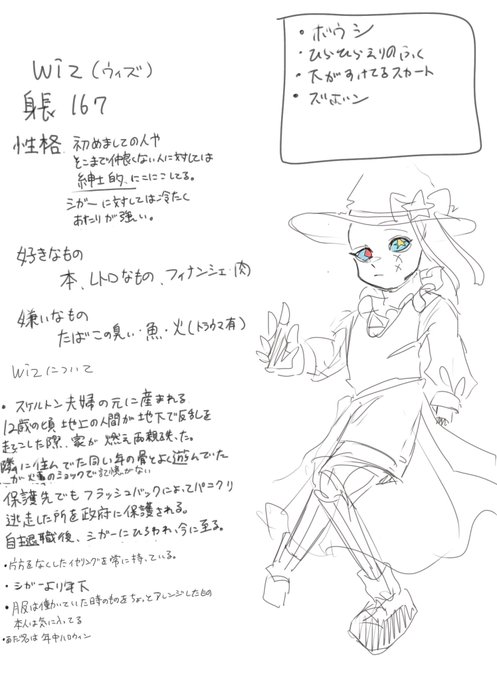 wiz (ウィズ)
身長 167
性格 初めましての人や
そこまで仲良くない人に対しては
紳士的、にこにこしてる。
シガーに対しては冷たく
あたりが強い。
好きなもの
本、レトロなもの、フィナンシェ・肉
嫌いなもの
たばこの臭い・魚・火(トラウマ有)
wizについて
・スケルトン夫婦の元に産まれる
12歳の頃地上の人間が地下で反乱を
起こした際、家が燃え両親を失った。
隣に住んでた同い年の骨とよく遊んでた
が火事のショックで記憶がない
保護先でもフラッシュバックによってパニクり
逃走した所を政府に保護される。
自主退職後、シガーにひろわれ、今に至る。
・片方をなくしたイヤリングを常に持っている。
・シガーより年下
・服は働いていた時のものをちょっとアレンジしたもの
本人は気に入ってる
・あだ名は年中ハロウィン
・ボウシ
・ひらひらえりのふく
・下がすけてるスカート
・ズボン